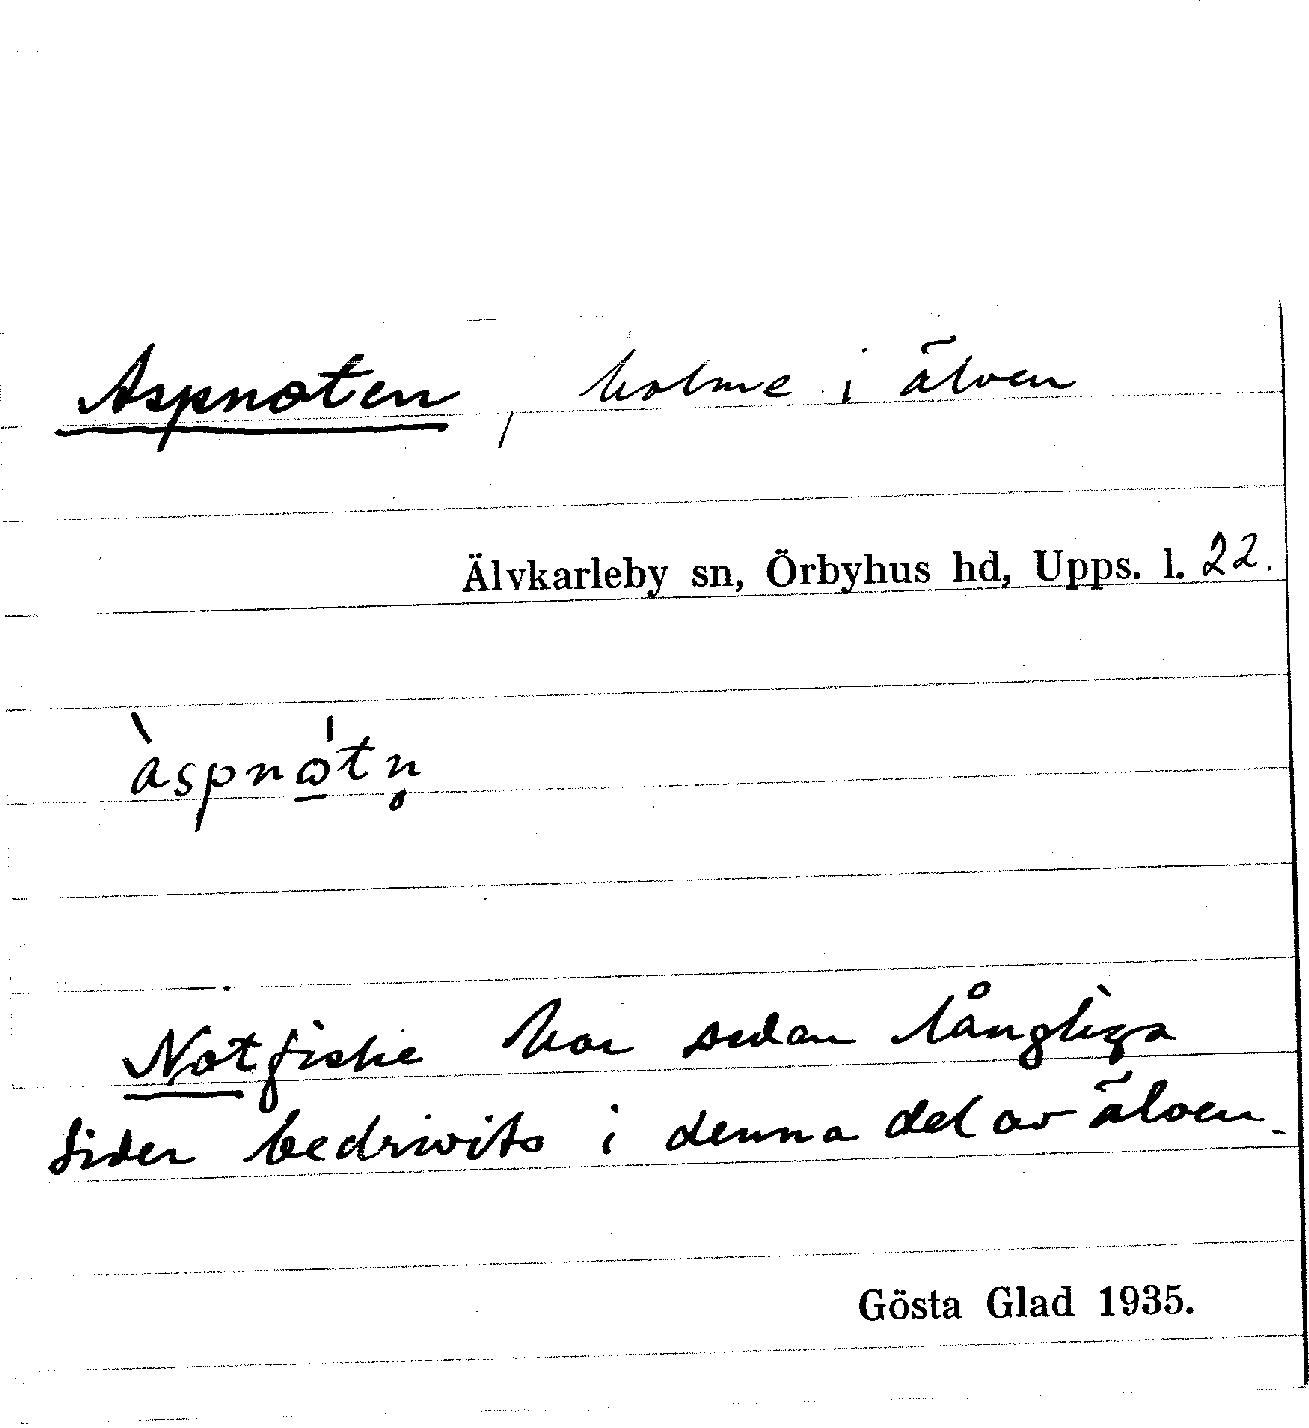 Aspnoten, holme i älven
Älvkarleby sn, Örbyhus hd, Upps. l. 22.
àspnώ̲tn̥
Notfiske har sedan långliga
tider bedrivits i denna del av älven.
Gösta Glad 1935.